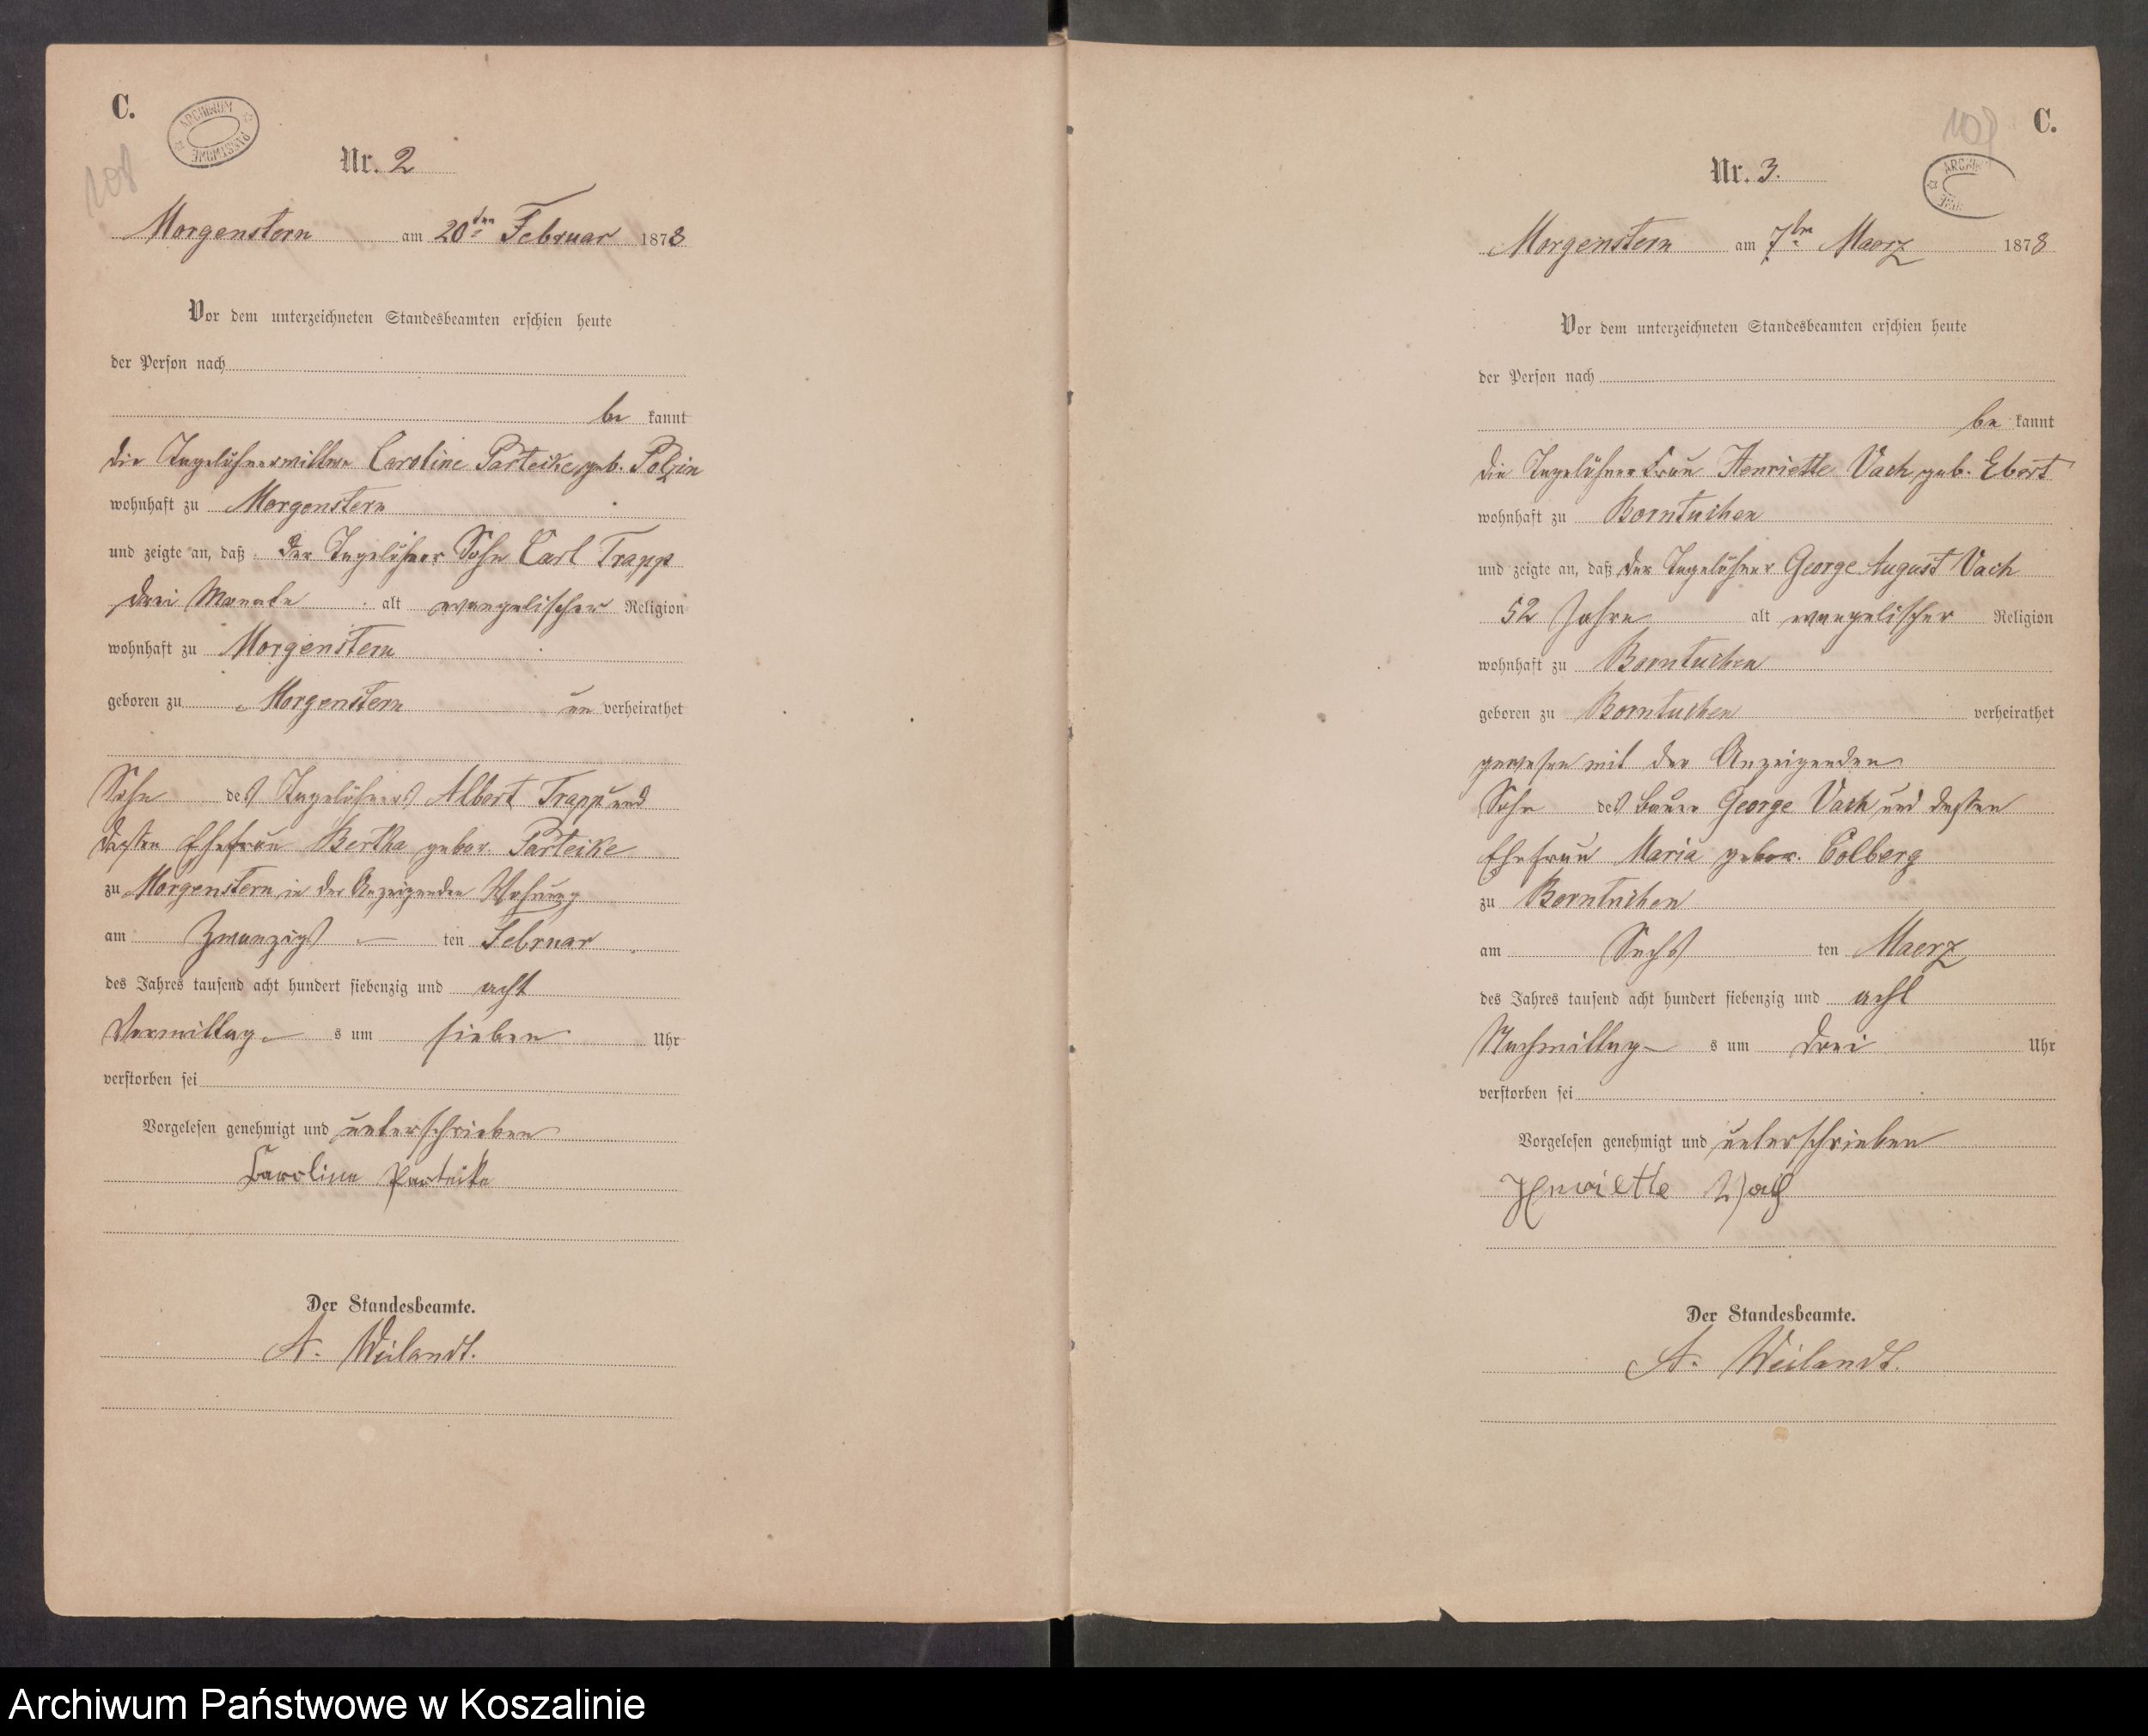 C.
ARCHIWUM PAŃSTWOWE
108
Nr. 2
Morgenstern am 20ten Februar 1878
Vor dem unterzeichneten Standesbeamten erschien heute
der Person nach
be kannt
die Tagelöhnerwittwe Caroline Parteike, geb. Polzin
wohnhaft zu Morgenstern
und zeigte an, daß der Tagelöhner Sohn Carl Trapp
drei Monate alt evangelischer Religion
wohnhaft zu Morgenstern
geboren zu Morgenstern un verheirathet
Sohn des Tagelöhners Albert Trapp und
dessen Ehefrau Bertha gebor. Parteike
zu Morgenstern, in der Anzeigenden Wohnung
am Zwanzigs ten Februar
des Jahres tausend acht hundert siebenzig und acht
Vormittag s um sieben Uhr
verstorben sei
Vorgelesen genehmigt und unterschrieben
Caroline Parteike
Der Standesbeamte.
A. Weilandt.
109
C.
Nr. 3.
ARCHIW
Morgenstern am 7ten Maerz 1878
Vor dem unterzeichneten Standesbeamten erschien heute
der Person nach
be kannt
die Tagelöhner Frau Henriette Vach, geb. Ebert
wohnhaft zu Borntuchen
und zeigte an, daß der Tagelöhner George August Vach
52 Jahre alt evangelischer Religion
wohnhaft zu Borntuchen
geboren zu Borntuchen verheirathet
gewesen mit der Anzeigenden
Sohn des Bauer George Vach und dessen
Ehefrau Maria gebor. Colberg
zu Borntuchen
am Sechs ten Maerz
des Jahres tausend acht hundert siebenzig und acht
Nachmittag s um drei Uhr
verstorben sei
Vorgelesen genehmigt und unterschrieben
Henriette Vach
Der Standesbeamte.
A. Weilandt.
Archiwum Państwowe w Koszalinie